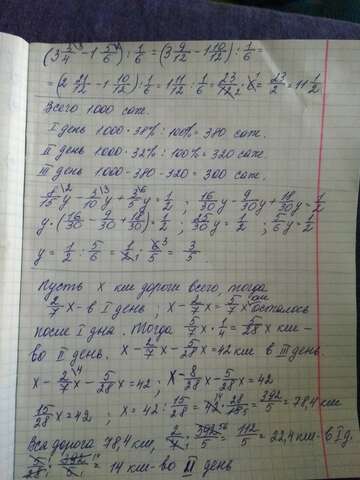 (3 3/4 - 1 5/6) : 1/6 = (3 9/12 - 1 10/12) : 1/6 =
= (2 21/12 - 1 10/12) : 1/6 = 1 11/12 : 1/6 = 23/12 · 6 = 23/2 = 11 1/2
Всего 1000 саж.
I день 1000 · 38% : 100% = 380 саж.
II день 1000 · 32% : 100% = 320 саж.
III день 1000 - 380 - 320 = 300 саж.
8/15 y - 3/10 y + 3/5 y = 1/2 ; 16/30 y - 9/30 y + 18/30 y = 1/2
y · (16/30 - 9/30 + 18/30) = 1/2 ; 25/30 y = 1/2 ; 5/6 y = 1/2
y = 1/2 : 5/6 = 1/2 · 6/5 = 3/5
Пусть x км дороги всего, тогда
2/7 x - в I день ; x - 2/7 x = 5/7 x осталось
после I дня. Тогда 5/7 x · 1/4 = 5/28 x км -
во II день. x - 2/7 x - 5/28 x = 42 км в III день.
x - 2/7 x - 5/28 x = 42 ; x - 8/28 x - 5/28 x = 42
15/28 x = 42 ; x = 42 : 15/28 = 42 · 28/15 = 392/5 = 78,4 км
Вся дорога 78,4 км, 2/7 · 392/5 = 112/5 = 22,4 км - в I д.
5/28 · 392/5 = 14 км - во II день